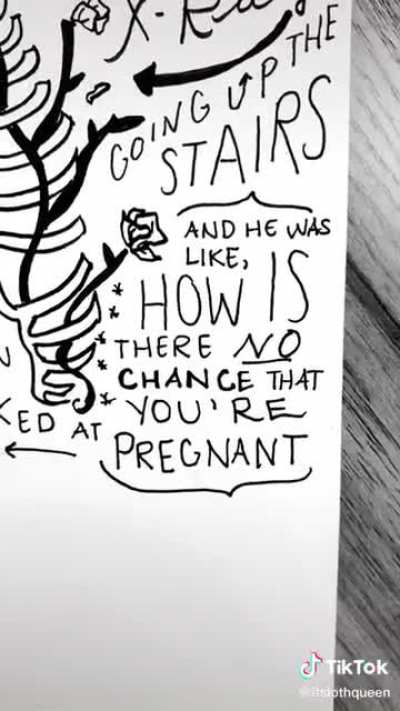 X-Ray
GOING UP THE
STAIRS
AND HE WAS
LIKE,
HOW IS
THERE NO
CHANCE THAT
YOU'RE
KED AT
PREGNANT
TikTok